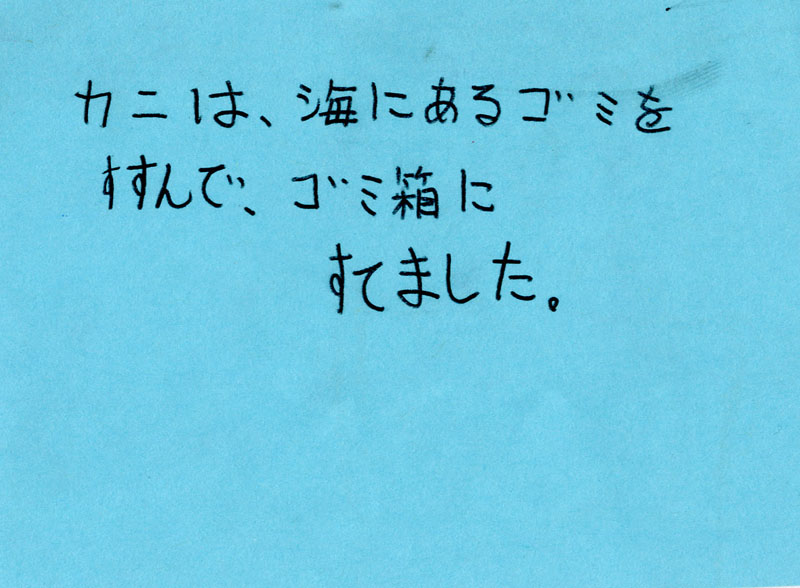 カニは、海にあるゴミを
すすんで、ゴミ箱に
すてました。